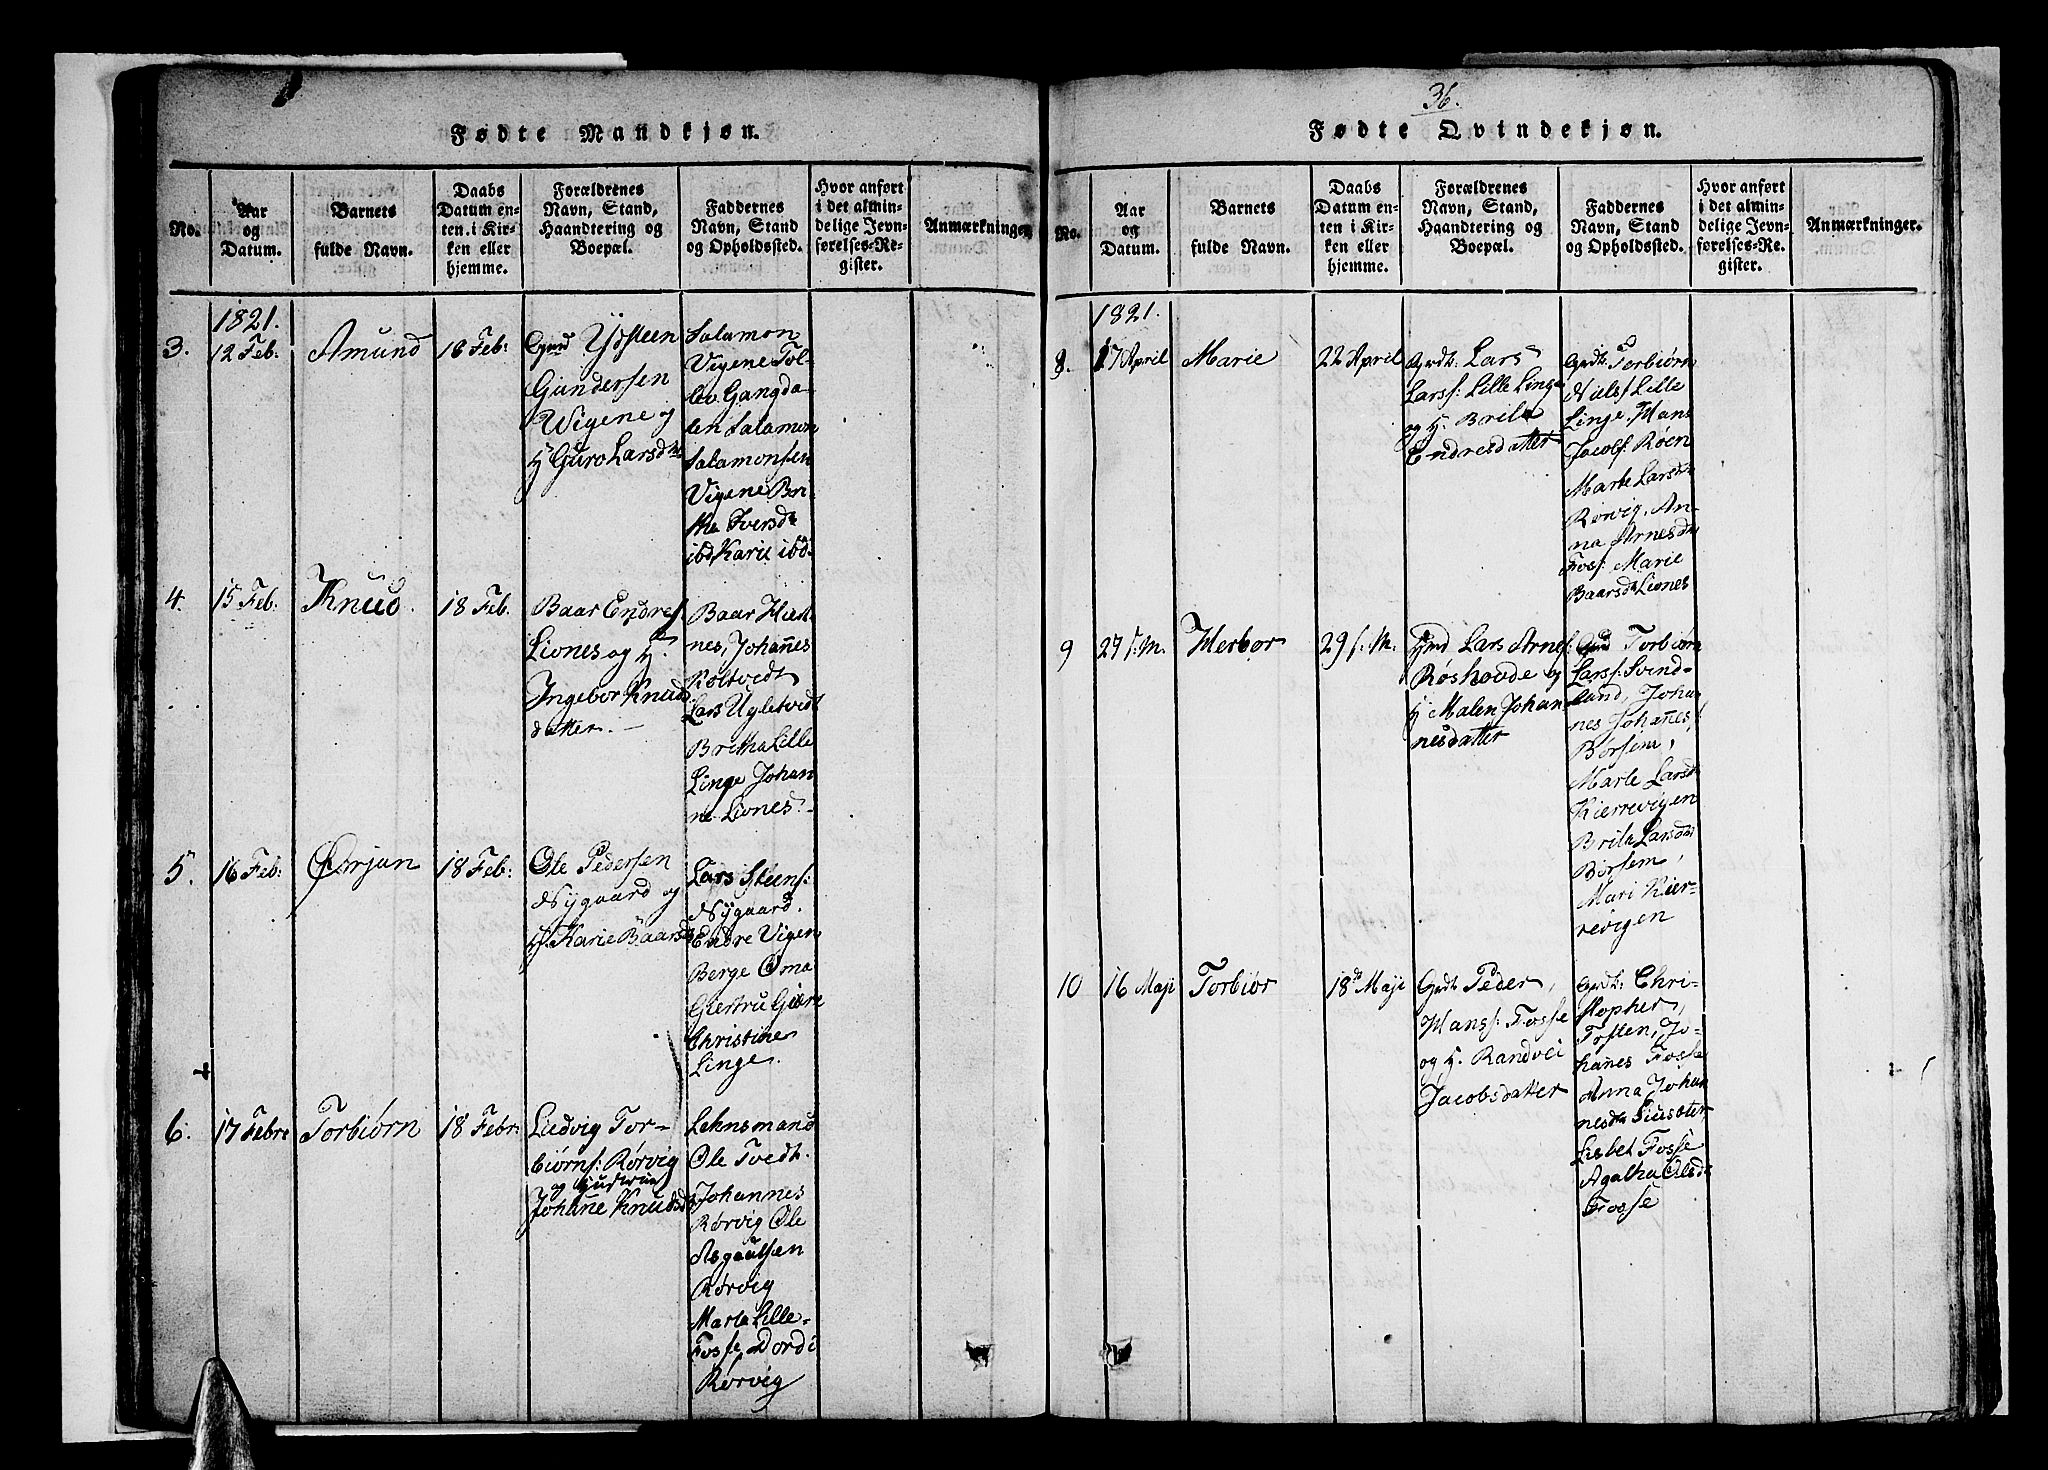 Fødte Mandkjøn.
No.
Aar
og
Datum.
Barnets
fulde Navn.
Daabs
Datum en-
ten i Kir-
ken eller
hjemme.
Forældrenes
Navn, Stand,
Haandtering og
Boepæl.
Faddernes
Navn, Stand
og Opholdssted.
Hvor anført
i det almin-
delige Jevn-
førelses-Re-
gister.
Anmærkninger.
1821.
3.
12 Feb:
Amund
18 Feb:
Ysteen
Gundersen
Wigene og
H Guro Larsdtr
Salamon
Vigene Tol-
lev Gangda-
len Salamon
Salamonsen
Vigene Bri-
the Iversdtr
ibd, Karie ibd-
4.
15 Feb:
Knud.
18 Feb.
Baar Endres.
Liones og H.
Ingebor Knuds
datter. -
Baar Hiert-
nes, Johañes
Roltvedt
Lars Ugletvedt
Britha Lille
Linge Johan
ne Liones.
5.
16 Feb:
Ørjan
18 Feb:
Ole Pedersen
Nygaard og
H. Karie Baarsd
Lars Steens:
Nygaard.
Endre Vigen
Berge Oma
Giertru Giere
Christine
Linge.
+
6.
17 Febr
Torbiørn
18 Febr:
Ludvig Tor-
biørns: Rørvig
og Hustrue
Johane Knudsd
Lehnsmand
Ole Tvedt.
Johannes
Rørvig Ole
Asgautsen
Rørvig
Marte Lille-
Fosse Dordi
Rørvig
36.
Fødte Qvindekjøn.
No.
Aar
og
Datum.
Barnets
fulde Navn.
Daabs
Datum en-
ten i Kir-
ken eller
hjemme.
Forældrenes
Navn, Stand,
Haandtering og
Boepæl.
Faddernes
Navn, Stand
og Opholdssted.
Hvor anført
i det almin-
delige Jevn-
førelses-Re-
gister.
Anmærkninger.
1821.
8.
17 April
Marie
22 April
Grdb. Lars
Larss: Lille Linge
og H. Brita
Endresdatter
Grdb. Torbiørn
Niels Lille
Linge, Hans
Jacobs: Røen
Marte Larsdtr
Rørvig, An-
na Arnesdtr
Foss: Marie
Baarsdtr Liones
9
27 s: M.
Herbor
29 s: M.
Hmd Lars Arnes:
Røshovde og
H Malen Johan
nesdatter
Torbiørn
Larss: Svind-
land, Johan
nes Johañes:
Børsem,
Marte Larsdtr
Kierrevigen
Brita Larsdtr
Børsem,
Mari Kier-
revigen
10
16 Maji
Torbiør
18de Maji
Grdb Peder,
Hanss: Fosse
og H. Randvei
Jacobsdatter
Grdb: Chri-
stopher,
Toften, Jo-
hañes Fosse
Anna Johan
nesdtr Giusæter
Lisbet Fosse
Agatha Olsdtr
Fosse